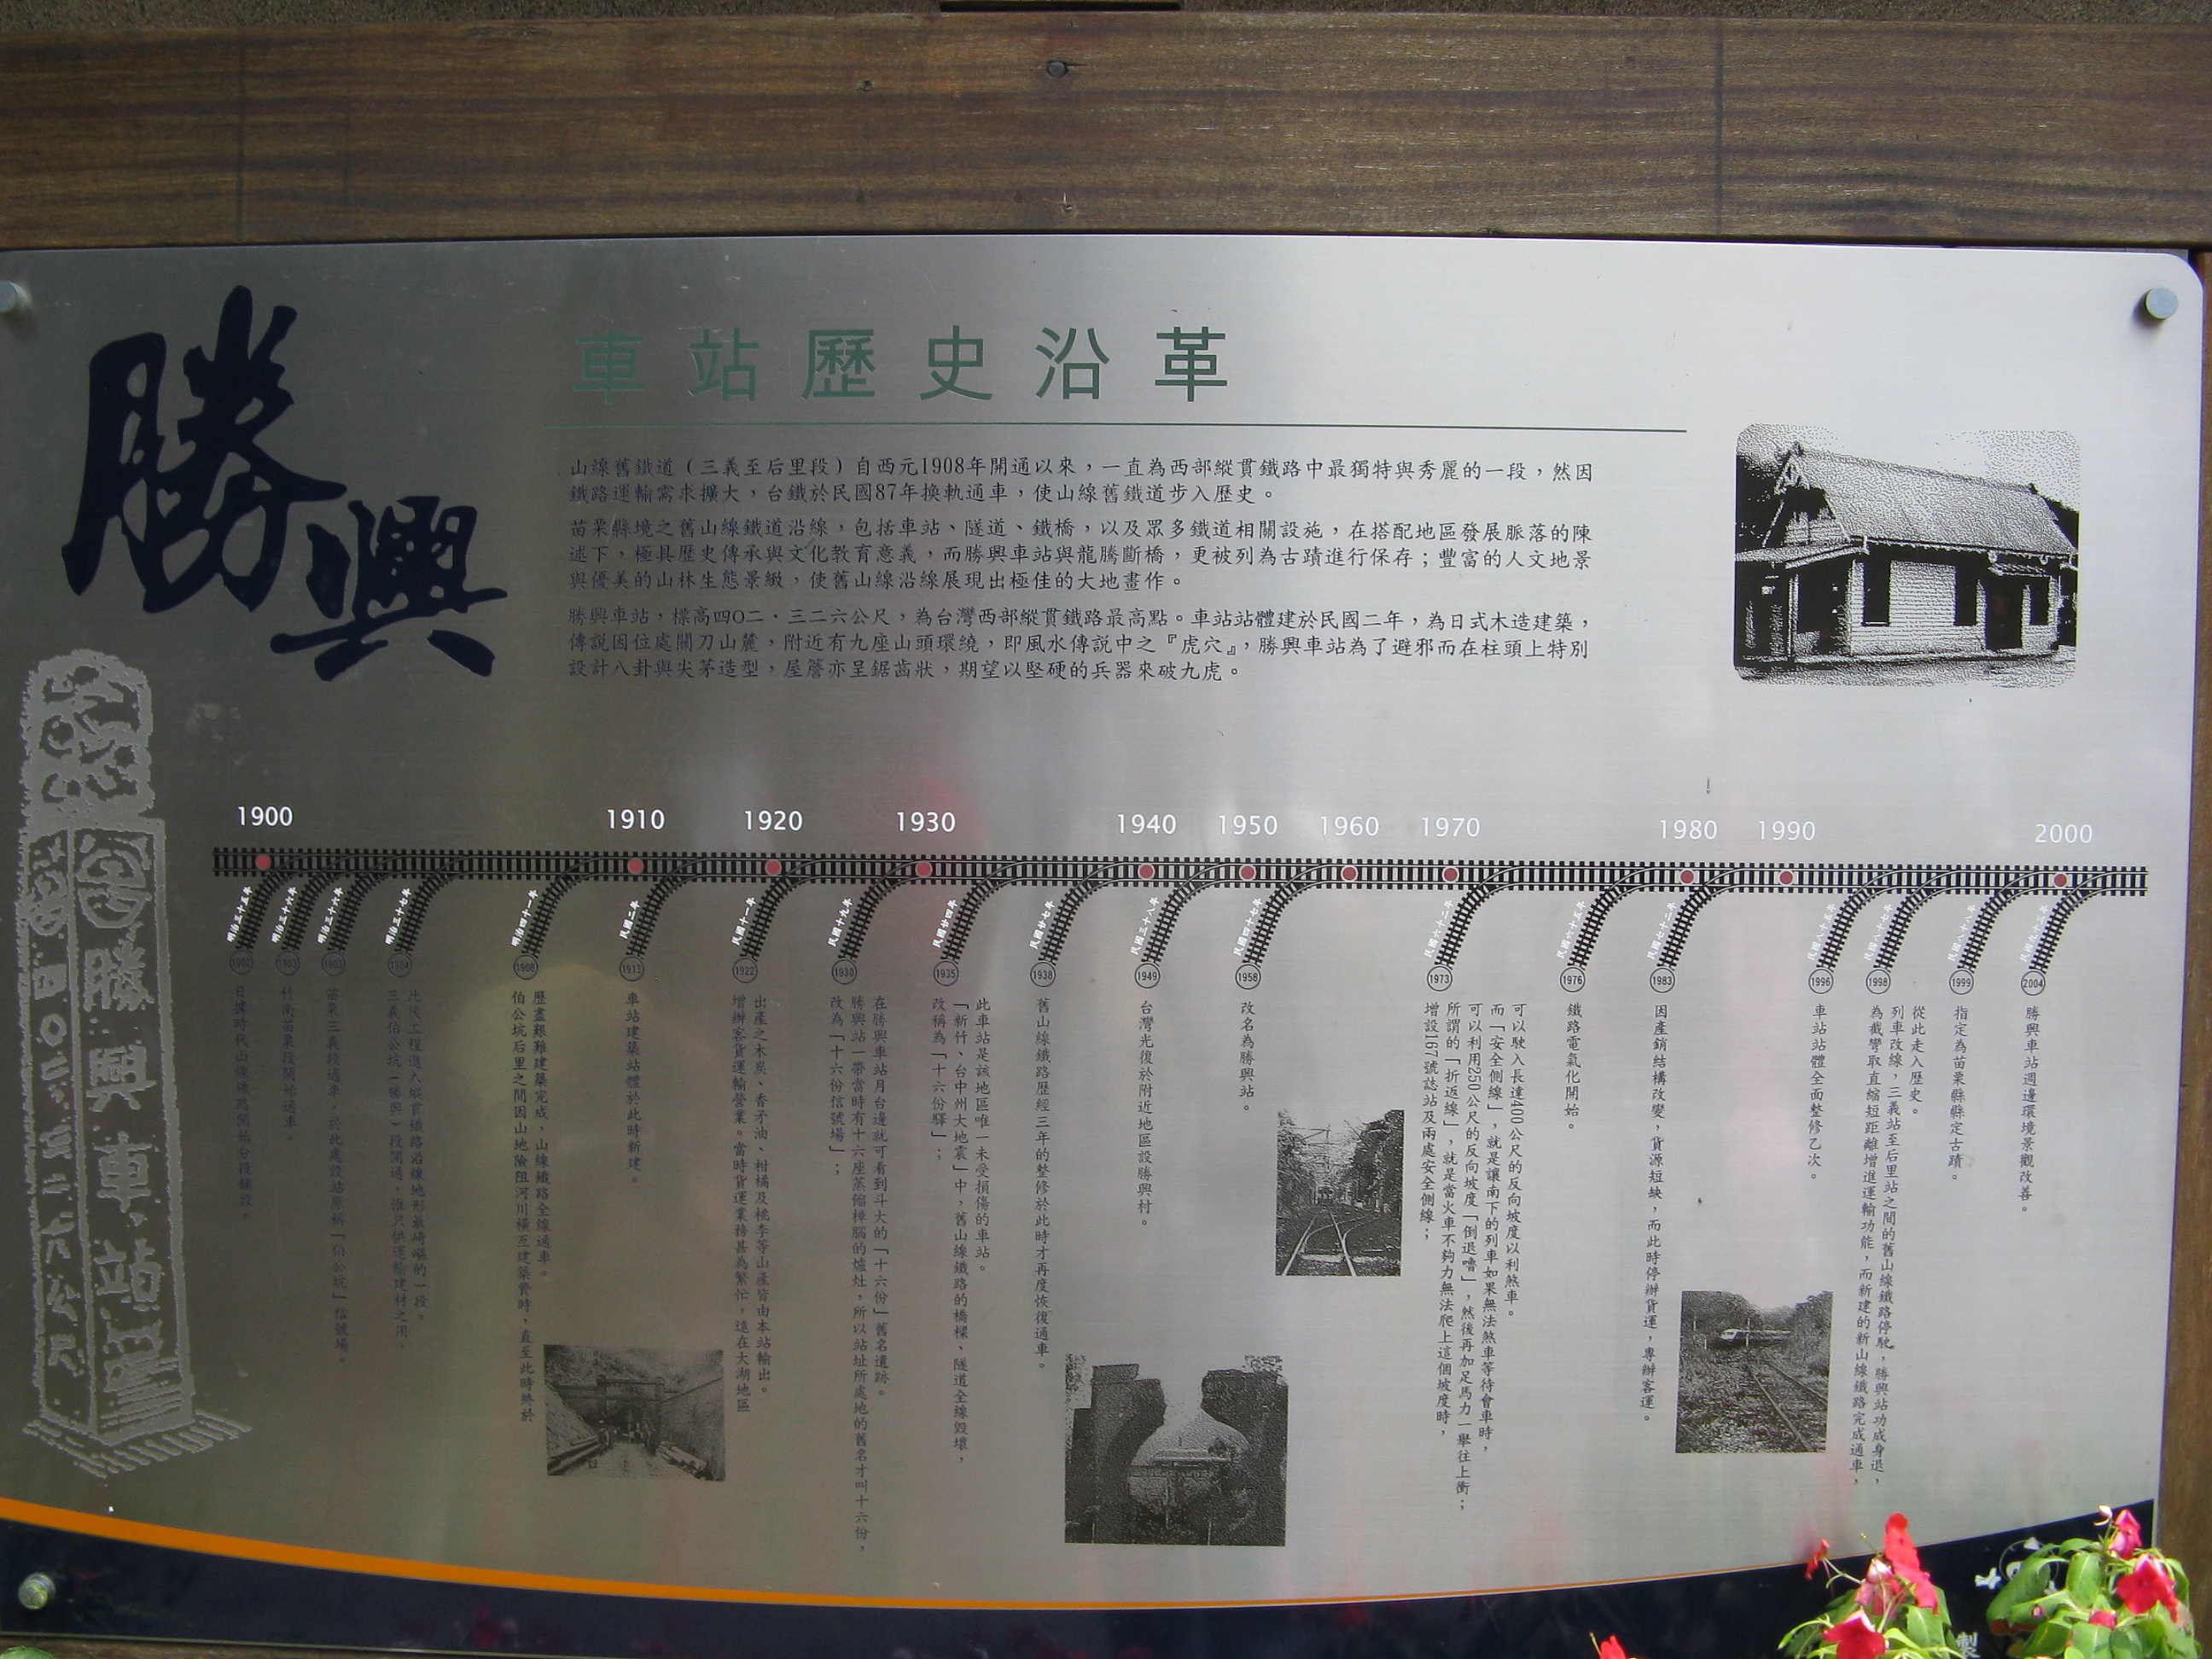 勝興
車站歷史沿革
山線舊鐵道（三義至后里段）自西元1908年開通以來，一直為西部縱貫鐵路中最獨特與秀麗的一段，然因
鐵路運輸需求擴大，台鐵於民國87年換軌通車，使山線舊鐵道步入歷史。
苗栗縣境之舊山線鐵道沿線，包括車站、隧道、鐵橋，以及眾多鐵道相關設施，在搭配地區發展脈落的陳
述下，極具歷史傳承與文化教育意義，而勝興車站與龍騰斷橋，更被列為古蹟進行保存；豐富的人文地景
與優美的山林生態景緻，使舊山線沿線展現出極佳的大地畫作。
勝興車站，標高四〇二．三二六公尺，為台灣西部縱貫鐵路最高點。車站站體建於民國二年，為日式木造建築，
傳說因位處關刀山麓，附近有九座山頭環繞，即風水傳說中之『虎穴』，勝興車站為了避邪而在柱頭上特別
設計八卦與尖茅造型，屋簷亦呈鋸齒狀，期望以堅硬的兵器來破九虎。
勝興車站
1900
1910
1920
1930
1940
1950
1960
1970
1980
1990
2000
明治三十五年
1902
日據時代山線鐵路開始分段鋪設。
明治三十六年
1903
竹南苗栗段開始通車。
明治三十六年
1903
苗栗三義段通車，於此處設站原稱「伯公坑」信號場。
明治三十七年
1904
此後工程進入縱貫鐵路沿線地形最崎嶇的一段。
三義伯公坑（勝興）段開通，惟只供運輸建材之用，
明治四十一年
1908
歷盡艱難建築完成，山線鐵路全線通車。
伯公坑后里之間因山地險阻河川橫亙建築費時，直至此時終於
民國二年
1913
車站建築站體於此時新建。
民國十一年
1922
出產之木炭、香矛油、柑橘及桃李等山產皆由本站輸出。
增辦客貨運輸營業。當時貨運業務甚為繁忙，遠在大湖地區
民國十九年
1930
在勝興車站月台邊就可看到斗大的「十六份」舊名遺跡。
勝興站一帶當時有十六座蒸餾樟腦的爐灶，所以站址所處地的舊名才叫十六份，
改為「十六份信號場」；
民國廿四年
1935
此車站是該地區唯一未受損傷的車站。
「新竹、台中州大地震」中，舊山線鐵路的橋樑、隧道全線毀壞，
改稱為「十六份驛」；
民國廿七年
1938
舊山線鐵路歷經三年的整修於此時才再度恢復通車。
民國三十八年
1949
台灣光復於附近地區設勝興村。
民國四十七年
1958
改名為勝興站。
民國六十二年
1973
可以駛入長達400公尺的反向坡度以利煞車。
而「安全側線」，就是讓南下的列車如果無法煞車等待會車時，
可以利用250公尺的反向坡度「倒退嚕」，然後再加足馬力一舉往上衝；
所謂的「折返線」，就是當火車不夠力無法爬上這個坡度時，
增設167號誌站及兩處安全側線；
民國六十五年
1976
鐵路電氣化開始。
民國七十二年
1983
因產銷結構改變，貨源短缺，而此時停辦貨運，專辦客運。
民國八十五年
1996
車站站體全面整修乙次。
民國八十七年
1998
從此走入歷史。
列車改線，三義站至后里站之間的舊山線鐵路停駛，勝興站功成身退，
為截彎取直縮短距離增進運輸功能，而新建的新山線鐵路完成通車，
民國八十八年
1999
指定為苗栗縣縣定古蹟。
民國九十三年
2004
勝興車站週邊環境景觀改善。
製